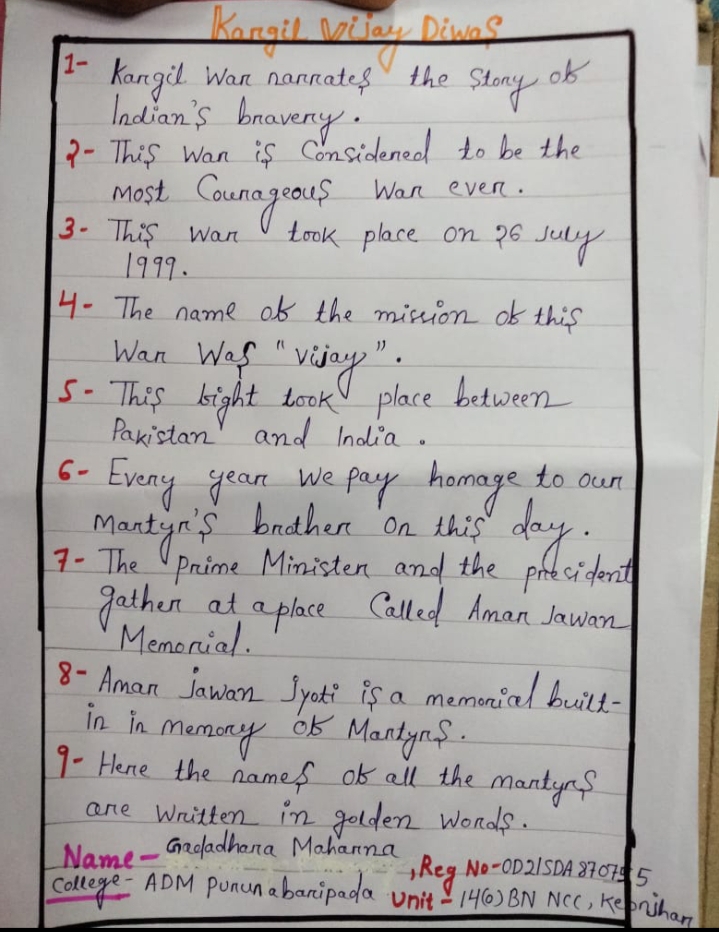 Kargil Vijay Diwas
1- Kargil War narrates the Story of
Indian's bravery.
2- This War is Considered to be the
most Courageous War ever.
3- This War took place on 26 July
1999.
4- The name of the mission of this
War Was "Vijay".
5- This fight took place between
Pakistan and India.
6- Every year We pay homage to our
Martyr's brother on this day.
7- The Prime Minister and the president
gather at a place Called Amar Jawan
Memorial.
8- Amar Jawan Jyoti is a memorial built-
in in memory of Martyrs.
9- Here the names of all the martyrs
are Written in golden Words.
Name- Gadadhara Maharna
, Reg No-OD21SDA870755
College- ADM Pururabaripada Unit- 14(O) BN NCC, Keonjhar